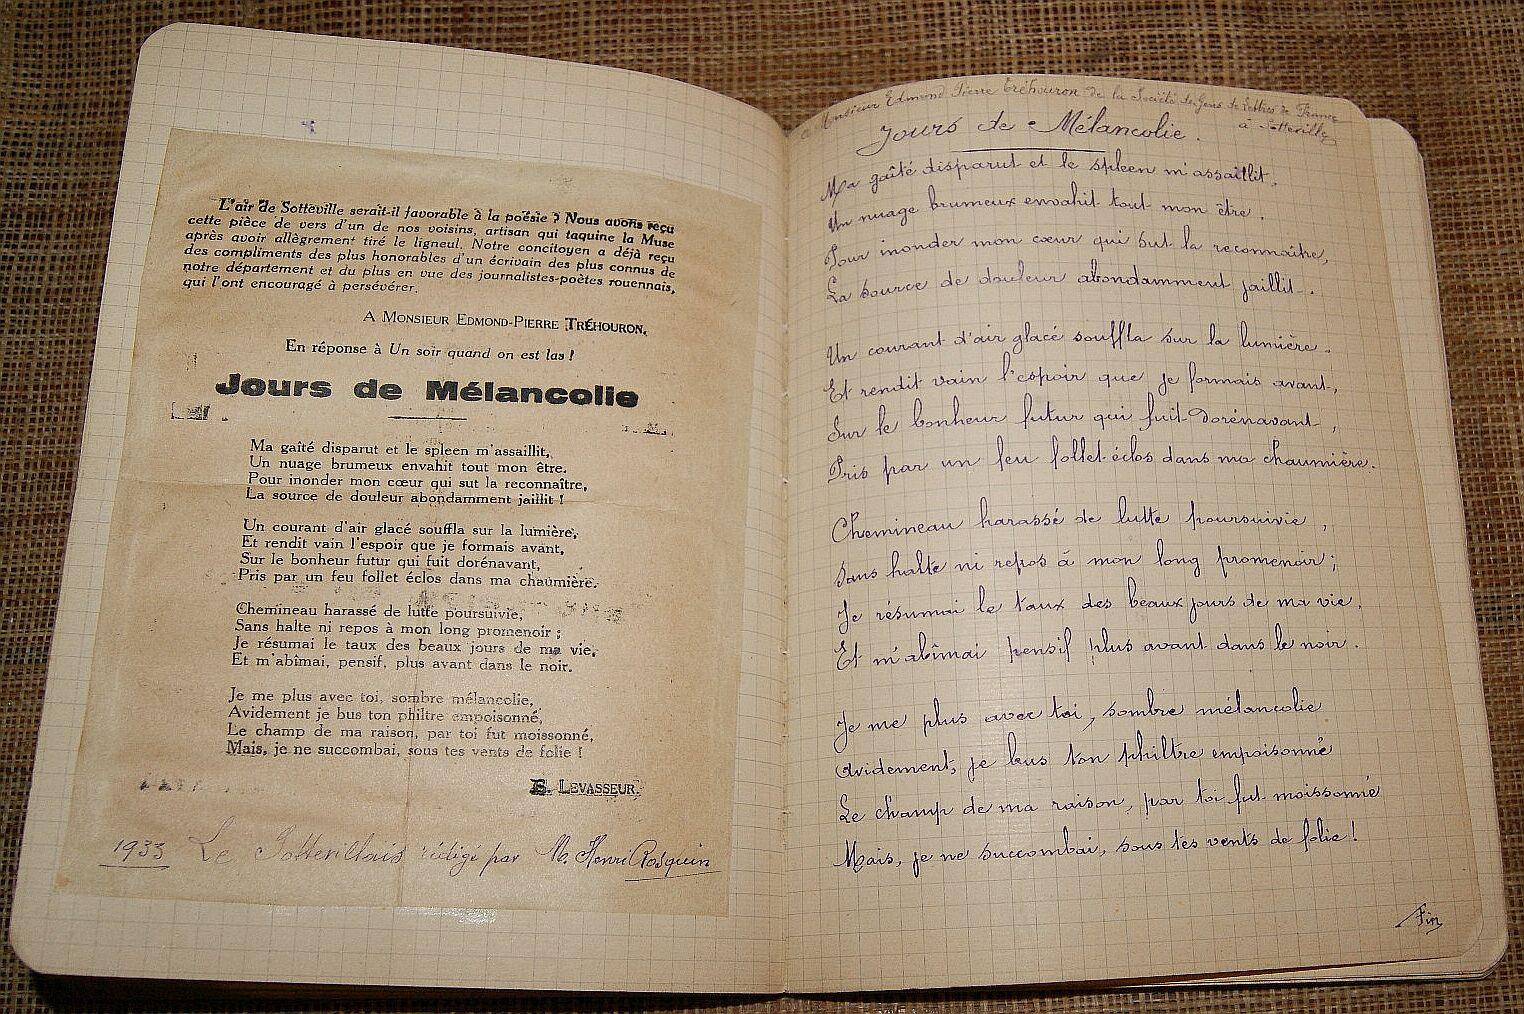 L'air de Sotteville serait-il favorable à la poésie ? Nous avons reçu
cette pièce de vers d'un de nos voisins, artisan qui taquine la Muse
après avoir allègrement tiré le ligneul. Notre concitoyen a déjà reçu
des compliments des plus honorables d'un écrivain des plus connus de
notre département et du plus en vue des journalistes-poètes rouennais,
qui l'ont encouragé à persévérer.
A MONSIEUR EDMOND-PIERRE TRÉHOURON,
En réponse à Un soir quand on est las !
Jours de Mélancolie
Ma gaîté disparut et le spleen m'assaillit,
Un nuage brumeux envahit tout mon être.
Pour inonder mon cœur qui sut la reconnaître,
La source de douleur abondamment jaillit !
Un courant d'air glacé souffla sur la lumière,
Et rendit vain l'espoir que je formais avant,
Sur le bonheur futur qui fuit dorénavant,
Pris par un feu follet éclos dans ma chaumière.
Chemineau harassé de lutte poursuivie,
Sans halte ni repos à mon long promenoir ;
Je résumai le taux des beaux jours de ma vie,
Et m'abîmai, pensif, plus avant dans le noir.
Je me plus avec toi, sombre mélancolie,
Avidement je bus ton philtre empoisonné,
Le champ de ma raison, par toi fut moissonné,
Mais, je ne succombai, sous tes vents de folie !
LEVASSEUR.
1933 Le Sottevillais rédigé par M. Henri Rosquin
a Monsieur Edmond Pierre Tréhouron de la Société des Gens de Lettres de France
à Sotteville
Jours de Mélancolie.
Ma gaîté disparut et le spleen m'assaillit,
Un nuage brumeux envahit tout mon être.
Pour inonder mon cœur qui sut la reconnaître,
La source de douleur abondamment jaillit.
Un courant d'air glacé souffla sur la lumière.
Et rendit vain l'espoir que je formais avant,
Sur le bonheur futur qui fuit dorénavant,
Pris par un feu follet éclos dans ma chaumière.
Chemineau harassé de lutte poursuivie,
Sans halte ni repos à mon long promenoir ;
Je résumai le taux des beaux jours de ma vie,
Et m'abîmai pensif plus avant dans le noir.
Je me plus avec toi, sombre mélancolie
Avidement, je bus ton philtre empoisonné
Le champ de ma raison, par toi fut moissonné
Mais, je ne succombai, sous tes vents de folie !
Fin